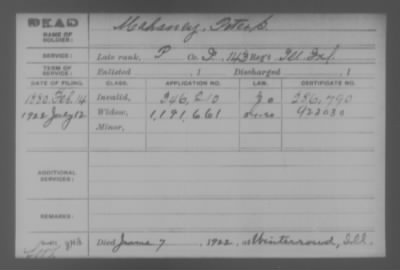 DEAD
NAME OF SOLDIER: Mahoney, Peter S.
SERVICE: Late rank, P Co. D, 143 Reg't Ill Inf.
TERM OF SERVICE: Enlisted , 1 Discharged , 1
DATE OF FILING. CLASS. APPLICATION NO. LAW. CERTIFICATE NO.
1880 Feb. 14 Invalid, 346,810 286,790
1922 July 12 Widow, 1,191,661 922030
Minor,
ADDITIONAL SERVICES:
REMARKS:
Died June 7, 1922, at Winterrowd, Ill.